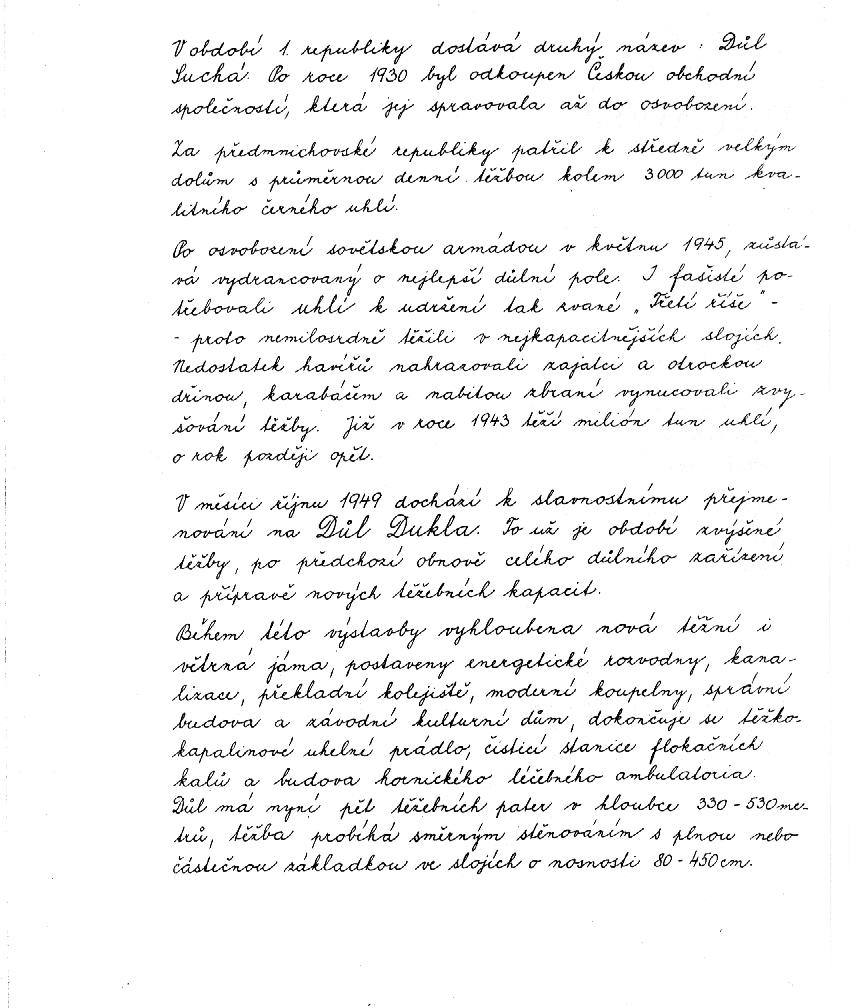 V období 1. republiky dostává druhý název : Důl
Suchá. Po roce 1930 byl odkoupen Českou obchodní
společností, která jej spravovala až do osvobození.
Za předmnichovské republiky patřil k středně velkým
dolům s průměrnou denní těžbou kolem 3000 tun kva-
litního černého uhlí.
Po osvobození sovětskou armádou v květnu 1945, zůstá-
vá vydrancovaný o nejlepší důlní pole. I fašisté po-
třebovali uhlí k udržení tak zvané „Třetí říše" -
- proto nemilosrdně těžili v nejkapacitnějších slojích.
Nedostatek havířů nahrazovali zajatci a otrockou
dřinou, karabáčem a nabitou zbraní vynucovali zvy-
šování těžby. Již v roce 1943 těží milión tun uhlí,
o rok později opět.
V měsíci říjnu 1949 dochází k slavnostnímu přejme-
nování na Důl Dukla. To už je období zvýšené
těžby, po předchozí obnově celého důlního zařízení
a přípravě nových těžebních kapacit.
Během této výstavby vyhloubena nová těžní i
větrná jáma, postaveny energetické rozvodny, kana-
lizace, překladní kolejiště, moderní koupelny, správní
budova a závodní kulturní dům, dokončuje se těžko-
kapalinové uhelné prádlo, čistící stanice flokačních
kalů a budova hornického léčebného ambulatoria.
Důl má nyní pět těžebních pater v hloubce 330 - 530 me-
trů, těžba probíhá směrným stěnováním s plnou nebo
částečnou základkou ve slojích o nosnosti 80 - 450 cm.